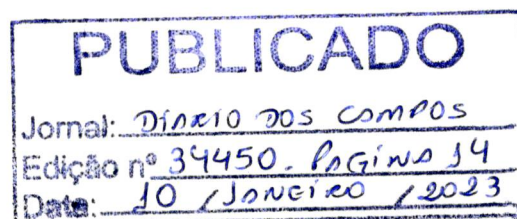 PUBLICADO
Jornal: DIARIO DOS CAMPOS
Edição nº 34450. PAGINA 14
Data: 10 / JANEIRO / 2023